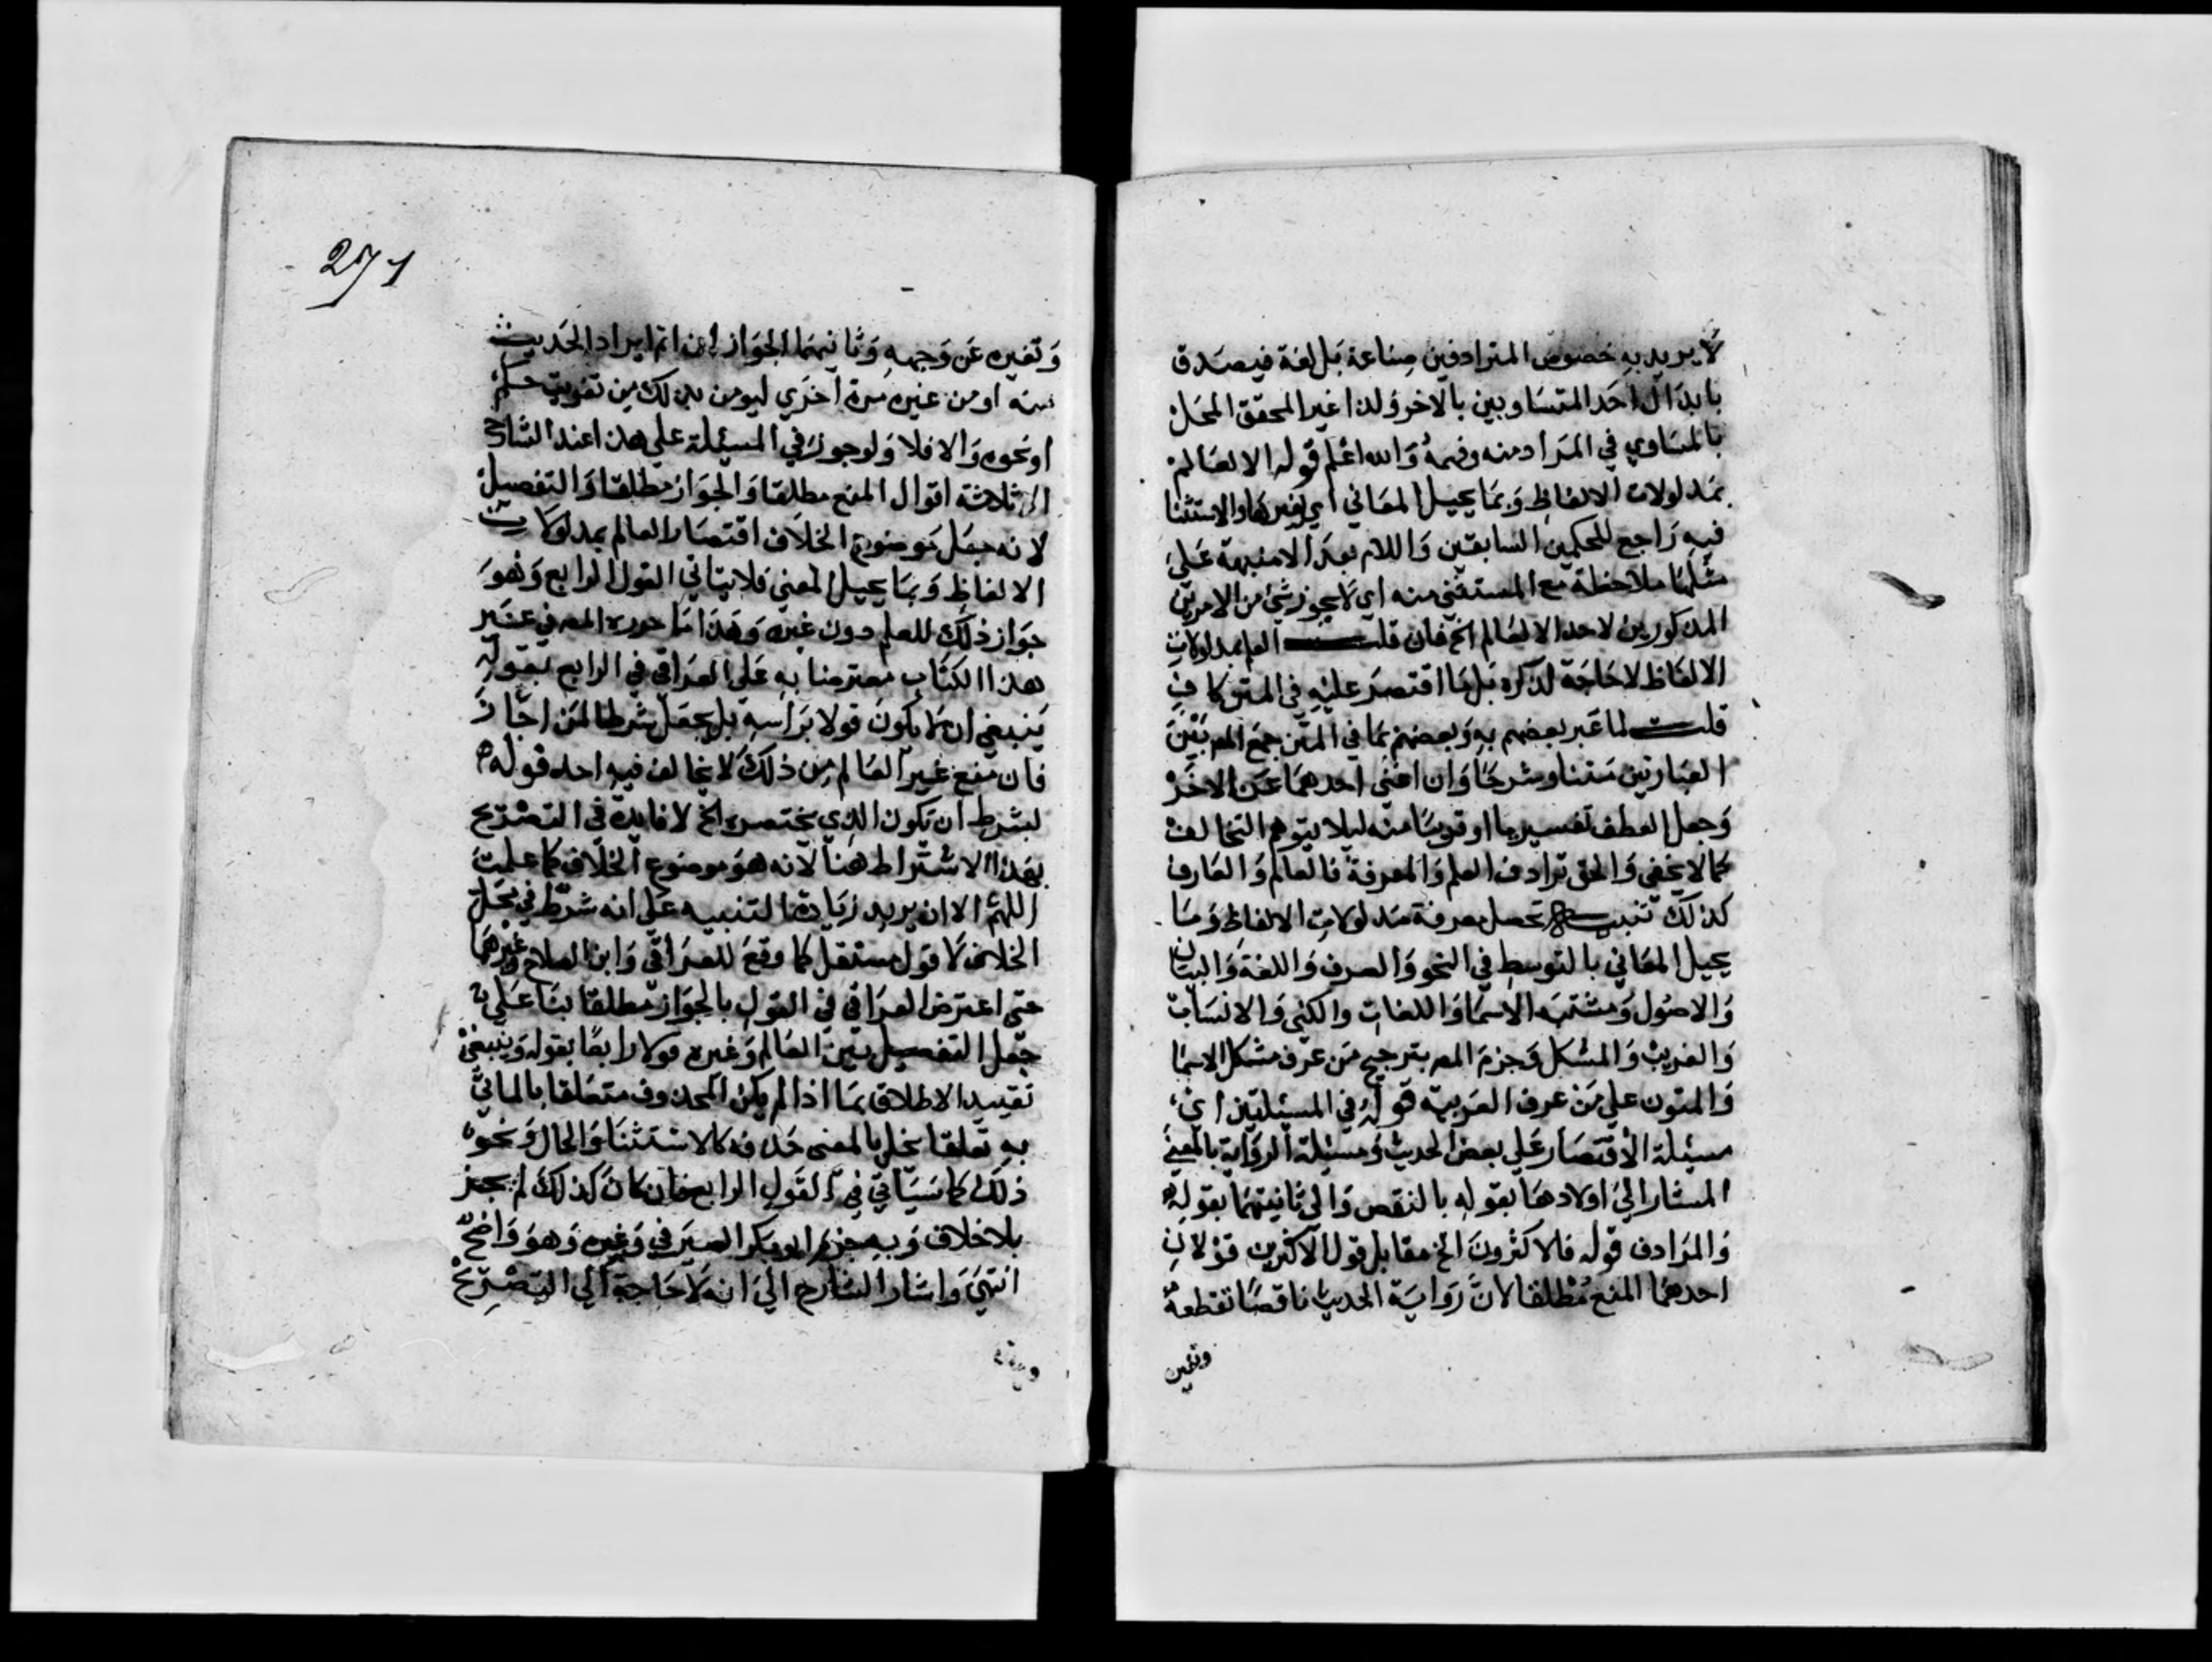 لا يريد به خصوص المترادفين صناعة بل لغة فيصدق
بابدال احد المتساويين بالاخر ولذا غير المحقق المحل
بالمساوي في المراد منه وفهمه والله اعلم قوله الا لعالم
بمدلولات الالفاظ وبما يحيل المعاني اي يغيرها والاستثنا
فيه راجع للحكمين السابقين واللام بعد الا منبهة على
مثلها ملاحظة مع المستثنى منه اي لا يجوز شئ من الامرين
المذكورين لاحد الا لعالم الخ فان قلت العلم بمدلولات
الالفاظ لا حاجة لذكره بل ما اقتصر عليه في المتن كاف
قلت لما عبر بعضهم به وبعضهم بما في المتن جمع المص بين
العبارتين متنا وشرحا وان اغنى احدهما عن الاخر
وجعل العطف تفسيريا او قريبا منه ليلا يتوهم التخالف
كما لا يخفى والحق ترادف العلم والمعرفة فالعالم والعارف
كذلك تنبيه تحصل معرفة مدلولات الالفاظ وما
يحيل المعاني بالتوسط في النحو والصرف واللغة والبيان
والاصول ومشتبه الاسما واللغات والكنى والانساب
والغريب والمشكل وجزم المص بترجيح من عرف مشكل الاسما
والمتون على من عرف العربية قوله في المسيلتين اي
مسيلة الاقتصار على بعض الحديث ومسيلة الرواية بالمعنى
المشار الى اولاهما بقوله بالنقص والى ثانيتهما بقوله
والمرادف قوله فالاكثرون الخ مقابل قول الاكثرين قولان
احدهما المنع مطلقا لان رواية الحديث ناقصا تقطعه
وتغير
271
وتغيره عن وجهه وثانيهما الجواز ان اتم ايراد الحديث
منه او من غيره مرة اخرى ليومن بذلك من تفويت حكم
او نحوه والا فلا ولوجوز في المسيلة على هذا عند الشارح
ثلاثة اقوال المنع مطلقا والجواز مطلقا والتفصيل
لانه جعل موضوع الخلاف اقتصار العالم بمدلولات
الالفاظ وبما يحيل المعنى فلا يتاتي القول الرابع وهو
جواز ذلك للعلم دون غيره وهذا ما حرره المص في غير
هذا الكتاب معترضا به على العراقي في الرابع بقوله
ينبغي ان لا يكون قولا براسه بل يجعل شرطا لمن اجاز
فان منع غير العالم من ذلك لا يخالف فيه احد قوله
بشرط ان يكون الذي يختصره الخ لا فايدة في التصريح
بهذا الاشتراط هنا لانه هو موضوع الخلاف كما علمت
اللهم الا ان يريد زيادة التنبيه على انه شرط في محل
الخلاف لا قول مستقل كما وقع للعراقي وابن الصلاح وغيرهما
حتى اعترض العراقي في القول بالجواز مطلقا بنا على
جعل التفصيل بين العالم وغيره قولا رابعا بقوله وينبغي
تقييد الاطلاق بما اذا لم يكن المحذوف متعلقا بالماتي
به تعلقا يخل بالمعنى حذفه كالاستثنا والحال ونحو
ذلك كما سياتي في القول الرابع فان كان كذلك لم يجز
بلا خلاف وبه جزم ابو بكر الصيرفي وغيره وهو واضح
انتهى واشار الشارح الى انه لا حاجة الى التصريح